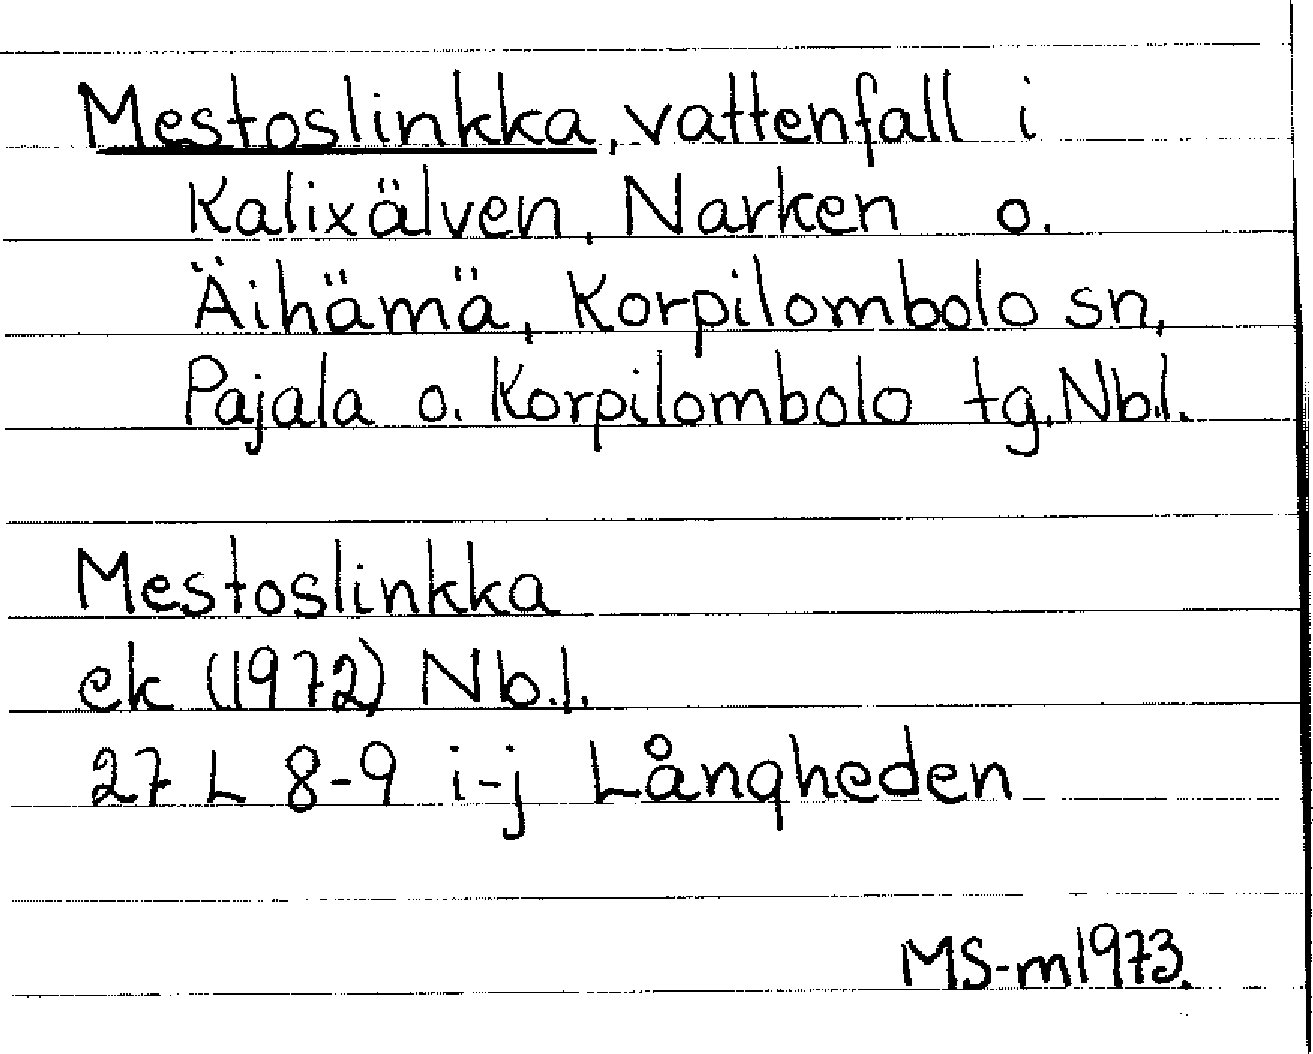 Mestoslinkka, vattenfall i
Kalixälven, Narken o.
Äihämä, Korpilombolo sn,
Pajala o. Korpilombolo tg. Nb.l.
Mestoslinkka
ek (1972) Nb.l.
27 L 8-9 i-j Långheden
MS-m1973.